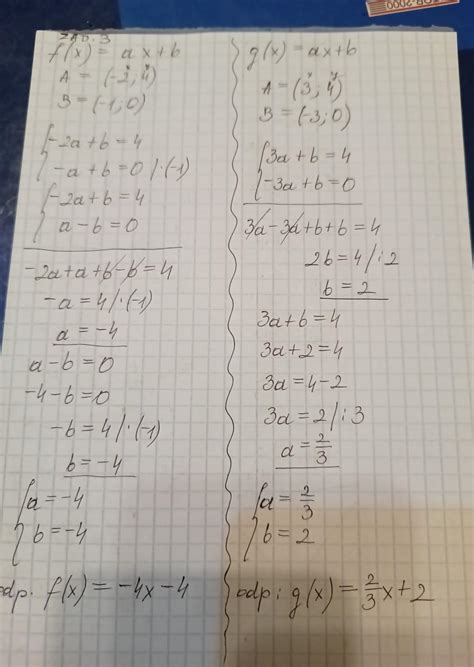 ZAD. 3
f(x) = ax+b
A = (-2; 4)
B = (-1; 0)
-2a + b = 4
-a + b = 0 /·(-1)
-2a + b = 4
a - b = 0
-2a + a + b - b = 4
-a = 4 /·(-1)
a = -4
a - b = 0
-4 - b = 0
-b = 4 /·(-1)
b = -4
a = -4
b = -4
odp: f(x) = -4x - 4
g(x) = ax+b
A = (3; 4)
B = (-3; 0)
3a + b = 4
-3a + b = 0
3a - 3a + b + b = 4
2b = 4 /:2
b = 2
3a + b = 4
3a + 2 = 4
3a = 4 - 2
3a = 2 /:3
a = 2/3
a = 2/3
b = 2
odp: g(x) = 2/3 x + 2